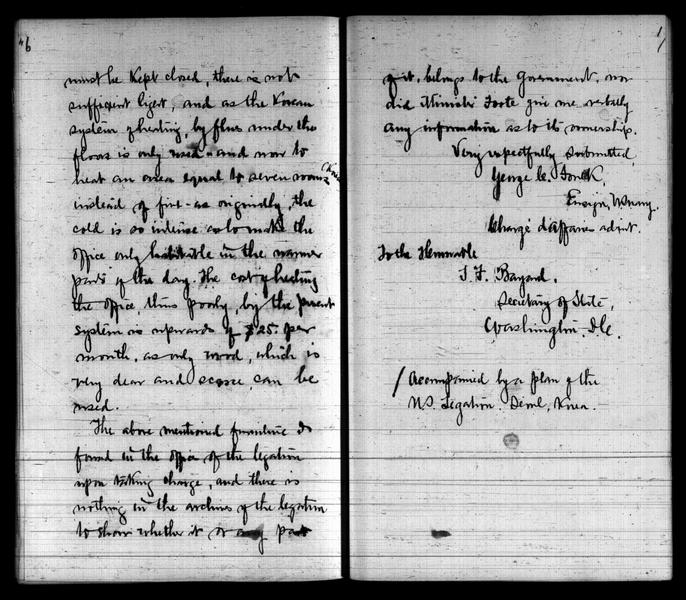 46
must be kept closed, there is not
sufficient light, and as the Korean
system of heating by flues under the
floors is only used - and now to
heat an area equal to seven rooms
instead of five - as originally, the
cold is so intense as to make the
office only habitable in the warmer
parts of the day. The cost of heating
the office, thus poorly, by the present
system is upwards of $25. per
month, as only wood, which is
very dear and scarce, can be
used.
The above mentioned furniture I
found in the office of the legation
upon taking charge, and there is
nothing in the archives of the legation
to show whether it or any part
of it, belongs to the Government, nor
did Minister Foote give me verbally
any information as to its ownership.
Very respectfully submitted,
George C. Foulk,
Ensign, U.S. Navy.
Chargé d'affaires ad int.
To the Honorable
T. F. Bayard,
Secretary of State,
Washington, D.C.
/ Accompanied by a plan of the
U.S. Legation, Seoul, Korea.